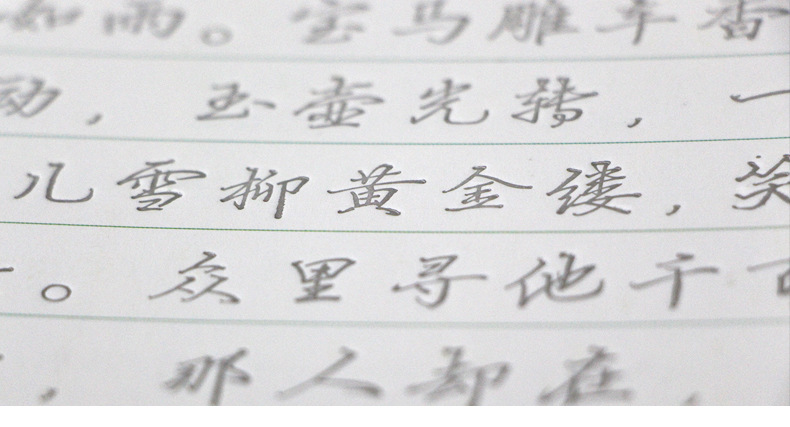 如雨。宝马雕车香
动，玉壶光转，一
儿雪柳黄金缕，笑
。众里寻他千百
，那人却在，